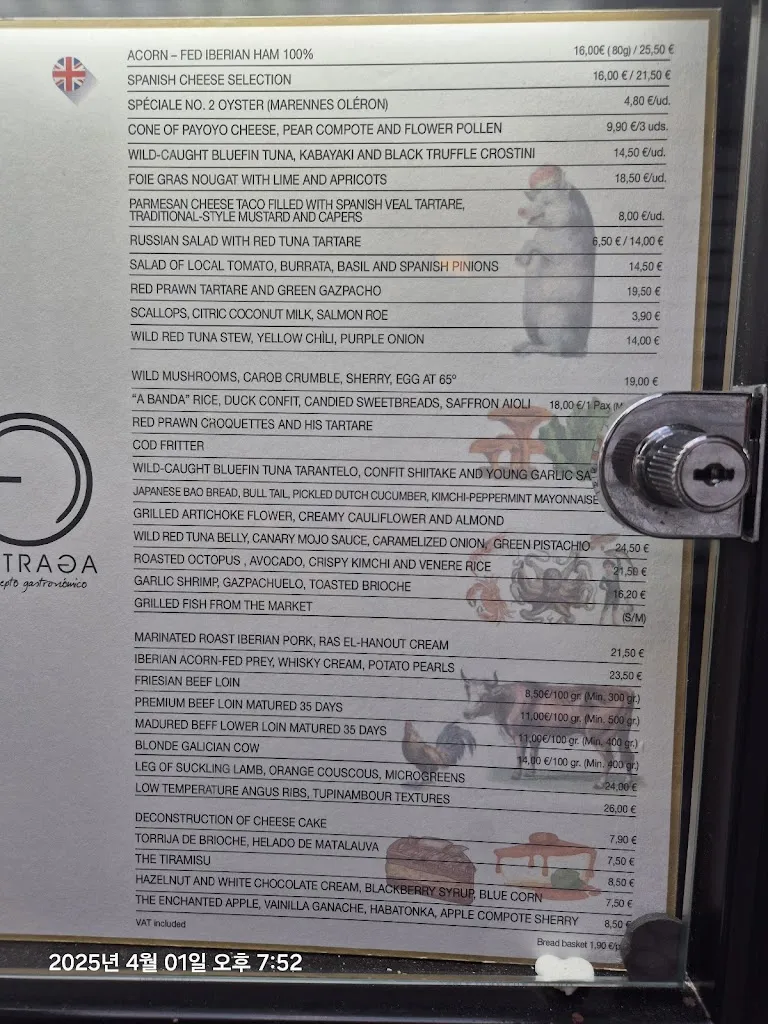 ACORN – FED IBERIAN HAM 100% 16,00€ ( 80g) / 25,50 €
SPANISH CHEESE SELECTION 16,00 € / 21,50 €
SPÉCIALE NO. 2 OYSTER (MARENNES OLÉRON) 4,80 €/ud.
CONE OF PAYOYO CHEESE, PEAR COMPOTE AND FLOWER POLLEN 9,90 €/3 uds.
WILD-CAUGHT BLUEFIN TUNA, KABAYAKI AND BLACK TRUFFLE CROSTINI 14,50 €/ud.
FOIE GRAS NOUGAT WITH LIME AND APRICOTS 18,50 €/ud.
PARMESAN CHEESE TACO FILLED WITH SPANISH VEAL TARTARE,
TRADITIONAL-STYLE MUSTARD AND CAPERS 8,00 €/ud.
RUSSIAN SALAD WITH RED TUNA TARTARE 6,50 € / 14,00 €
SALAD OF LOCAL TOMATO, BURRATA, BASIL AND SPANISH PINIONS 14,50 €
RED PRAWN TARTARE AND GREEN GAZPACHO 19,50 €
SCALLOPS, CITRIC COCONUT MILK, SALMON ROE 3,90 €
WILD RED TUNA STEW, YELLOW CHÌLI, PURPLE ONION 14,00 €
WILD MUSHROOMS, CAROB CRUMBLE, SHERRY, EGG AT 65º 19,00 €
“A BANDA” RICE, DUCK CONFIT, CANDIED SWEETBREADS, SAFFRON AIOLI 18,00 €/1 Pax (M
RED PRAWN CROQUETTES AND HIS TARTARE
COD FRITTER
WILD-CAUGHT BLUEFIN TUNA TARANTELO, CONFIT SHIITAKE AND YOUNG GARLIC SA
JAPANESE BAO BREAD, BULL TAIL, PICKLED DUTCH CUCUMBER, KIMCHI-PEPPERMINT MAYONNAISE
GRILLED ARTICHOKE FLOWER, CREAMY CAULIFLOWER AND ALMOND
WILD RED TUNA BELLY, CANARY MOJO SAUCE, CARAMELIZED ONION, GREEN PISTACHIO 24,50 €
ROASTED OCTOPUS , AVOCADO, CRISPY KIMCHI AND VENERE RICE 21,50 €
GARLIC SHRIMP, GAZPACHUELO, TOASTED BRIOCHE 16,20 €
GRILLED FISH FROM THE MARKET (S/M)
MARINATED ROAST IBERIAN PORK, RAS EL-HANOUT CREAM 21,50 €
IBERIAN ACORN-FED PREY, WHISKY CREAM, POTATO PEARLS 23,50 €
FRIESIAN BEEF LOIN 8,50€/100 gr. (Min. 300 gr.)
PREMIUM BEEF LOIN MATURED 35 DAYS 11,00€/100 gr. (Min. 500 gr.)
MADURED BEFF LOWER LOIN MATURED 35 DAYS 11,00€/100 gr. (Min. 400 gr.)
BLONDE GALICIAN COW 14,00 €/100 gr. (Min. 400 gr.)
LEG OF SUCKLING LAMB, ORANGE COUSCOUS, MICROGREENS 24,00 €
LOW TEMPERATURE ANGUS RIBS, TUPINAMBOUR TEXTURES 26,00 €
DECONSTRUCTION OF CHEESE CAKE 7,90 €
TORRIJA DE BRIOCHE, HELADO DE MATALAUVA 7,50 €
THE TIRAMISU 8,50 €
HAZELNUT AND WHITE CHOCOLATE CREAM, BLACKBERRY SYRUP, BLUE CORN 7,50 €
THE ENCHANTED APPLE, VAINILLA GANACHE, HABATONKA, APPLE COMPOTE SHERRY 8,50 €
VAT included
Bread basket 1,90 €/p
TRAGA
epto gastronómico
2025년 4월 01일 오후 7:52